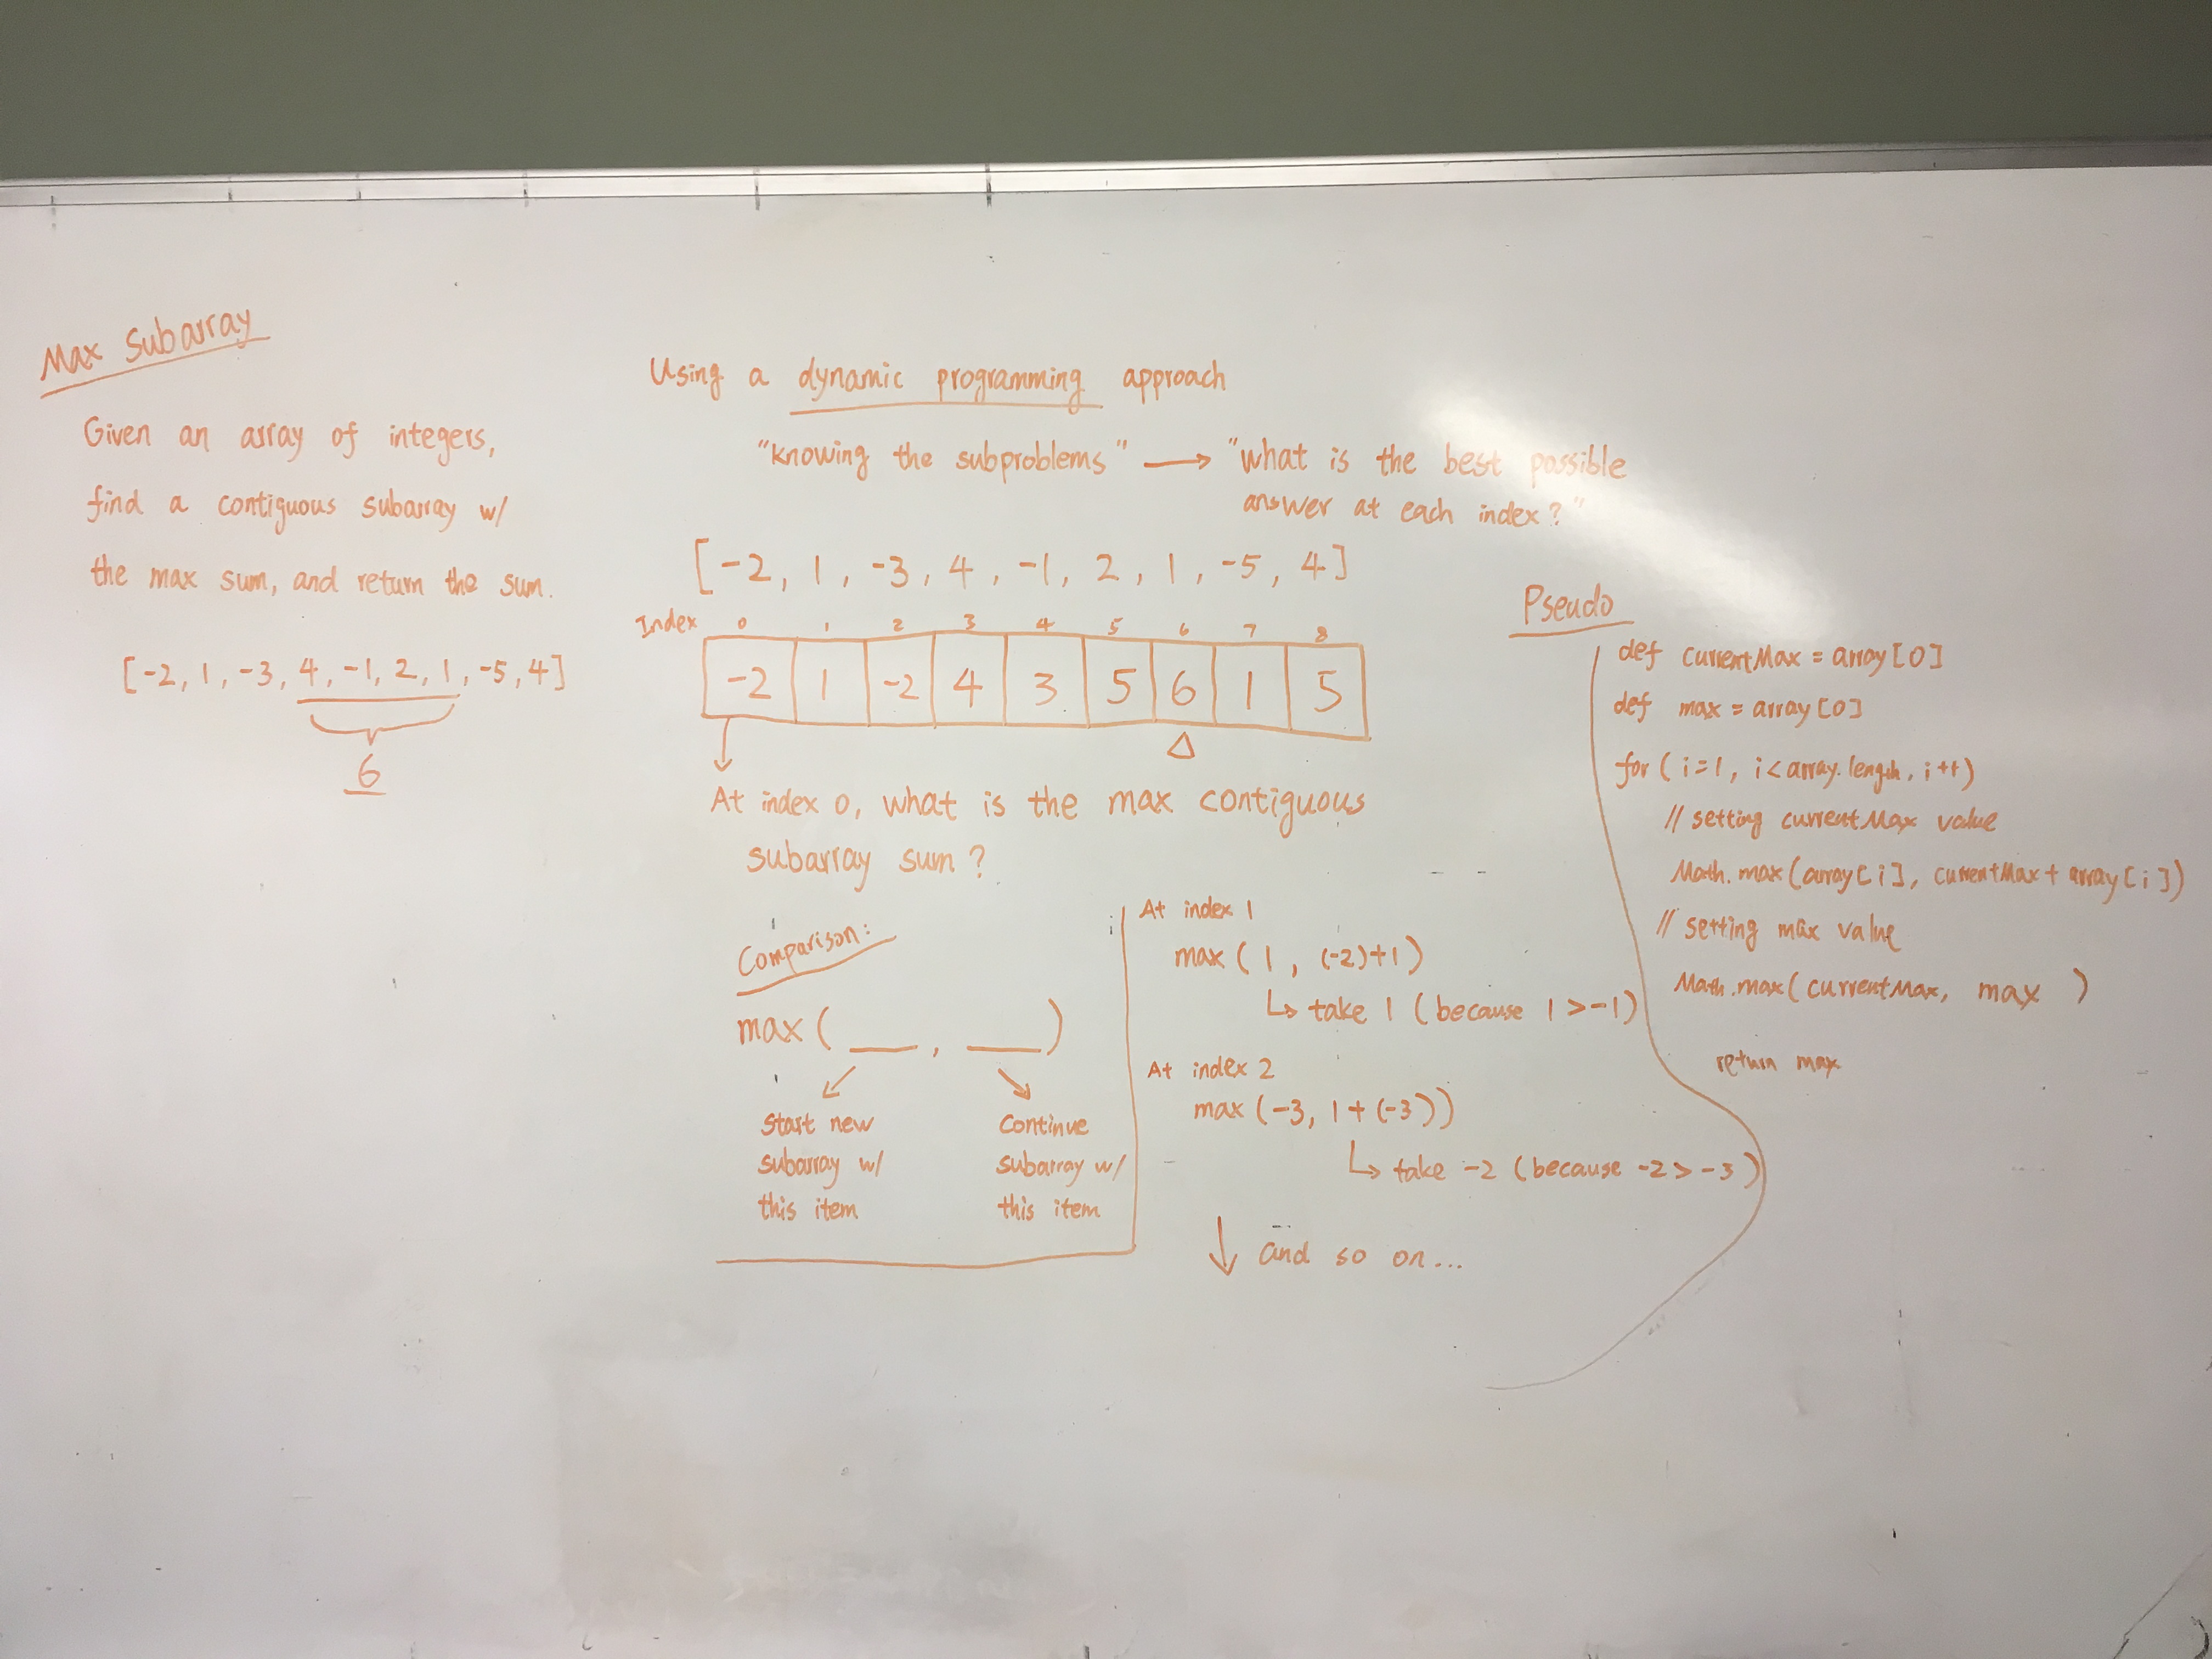 Max Subarray
Given an array of integers,
find a contiguous subarray w/
the max sum, and return the sum.
[-2, 1, -3, 4, -1, 2, 1, -5, 4]
6
Using a dynamic programming approach
"knowing the subproblems" → "what is the best possible
answer at each index?"
[-2, 1, -3, 4, -1, 2, 1, -5, 4]
Index 0 1 2 3 4 5 6 7 8
-2 1 -2 4 3 5 6 1 5
At index 0, what is the max contiguous
subarray sum?
Comparison:
max ( __ , __ )
Start new
subarray w/
this item
Continue
subarray w/
this item
At index 1
max ( 1 , (-2)+1 )
↳ take 1 (because 1 > -1)
At index 2
max (-3, 1 + (-3))
↳ take -2 (because -2 > -3)
↓ and so on...
Pseudo
def currentMax = array[0]
def max = array[0]
for ( i=1, i<array.length, i++)
// setting currentMax value
Math.max(array[i], currentMax + array[i])
// setting max value
Math.max(currentMax, max )
return max